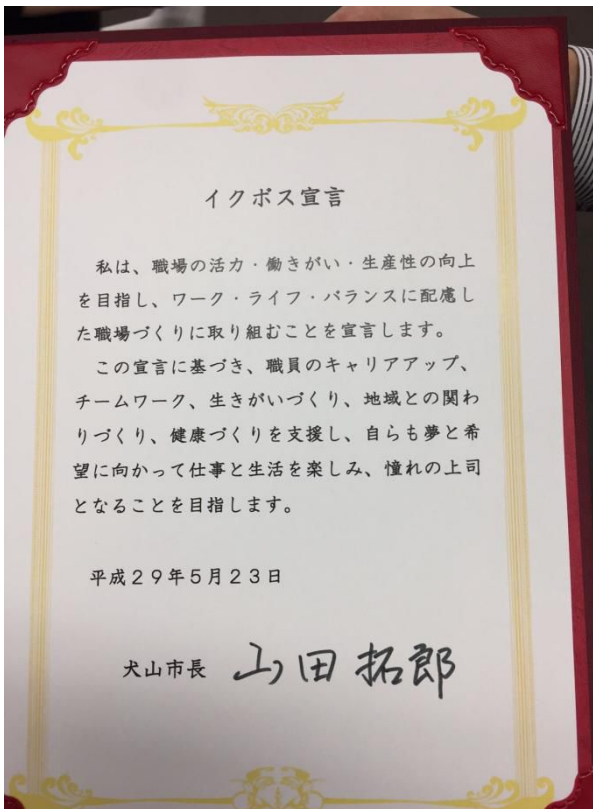 イクボス宣言
私は、職場の活力・働きがい・生産性の向上
を目指し、ワーク・ライフ・バランスに配慮し
た職場づくりに取り組むことを宣言します。
この宣言に基づき、職員のキャリアアップ、
チームワーク、生きがいづくり、地域との関わ
りづくり、健康づくりを支援し、自らも夢と希
望に向かって仕事と生活を楽しみ、憧れの上司
となることを目指します。
平成29年5月23日
犬山市長 山田拓郎